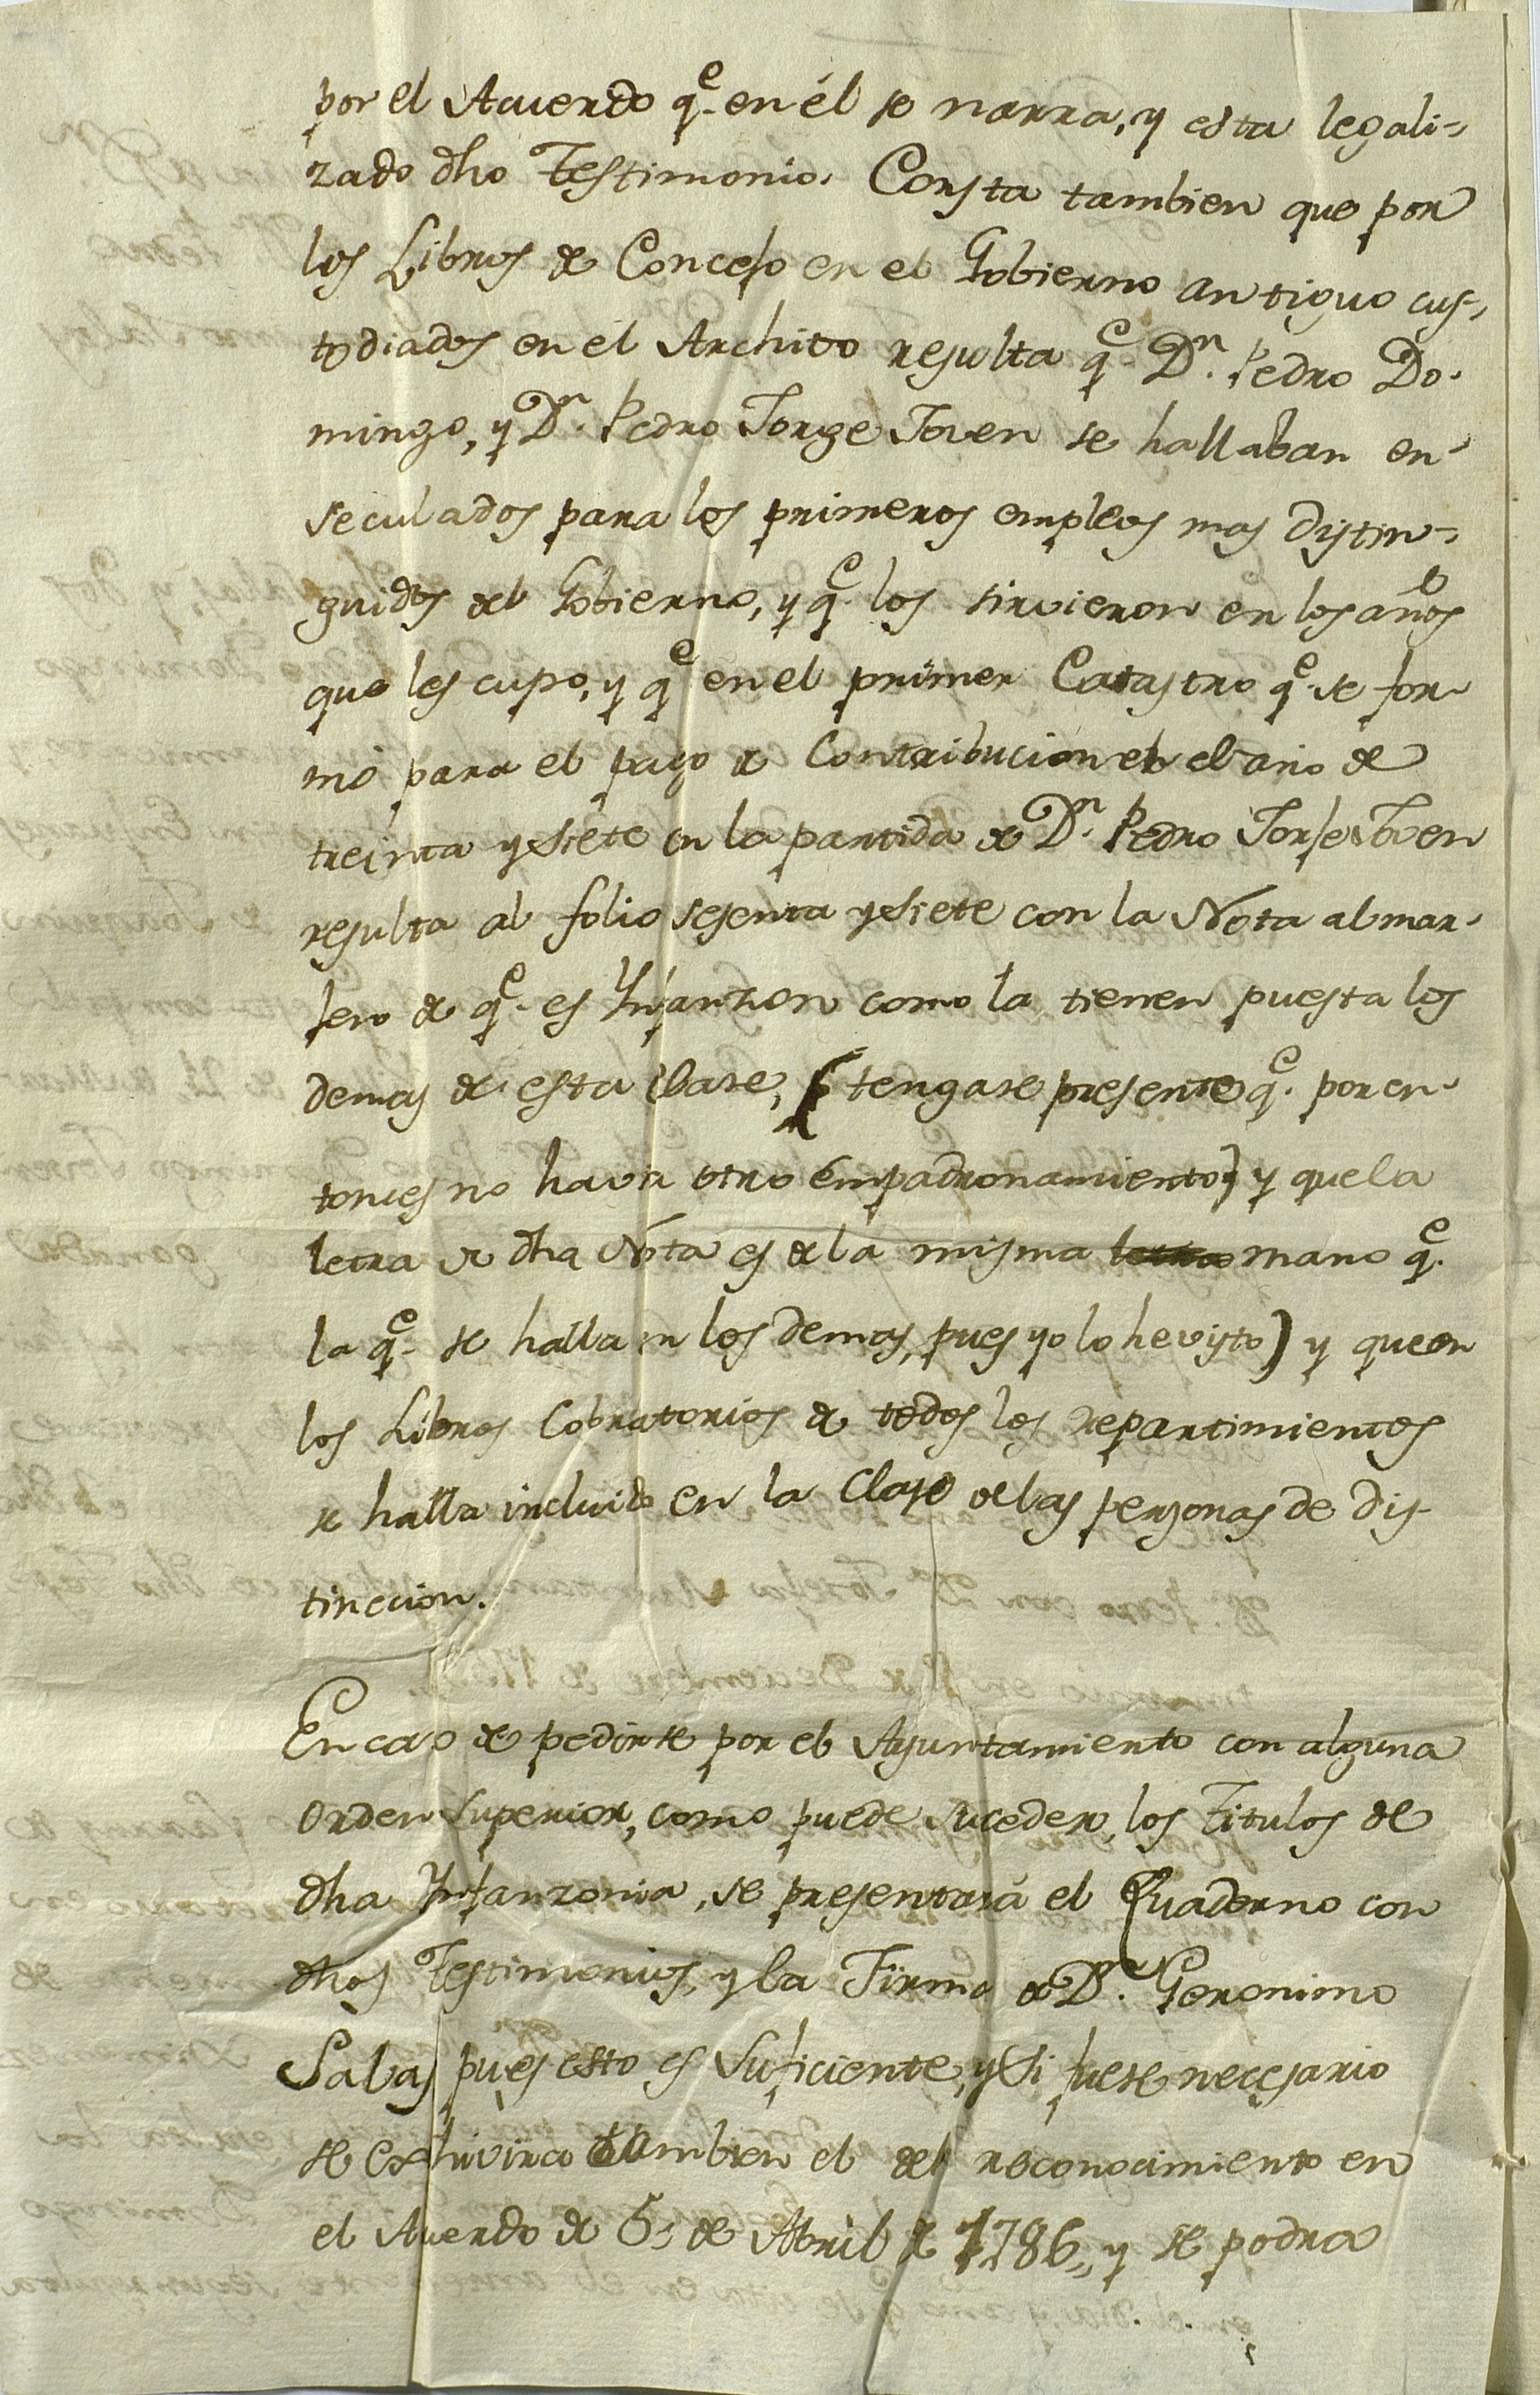 por el Acuerdo q.e en él se narra, y esta legali-
zado dho Testimonio. Consta tambien que por
los Libros de Concejo en el Gobierno antiguo cus-
todiados en el Archivo resulta q.e D.n Pedro Do-
mingo, y D.n Pedro Jorge Joven se hallaban en-
seculados para los primeros empleos mas distin-
guidos del Gobierno, y q.e los sirvieron en los años
que les cupo, y q.e en el primer Catastro q.e se for-
mó para el pago de Contribucion en el año de
treinta y siete en la partida de D.n Pedro Jorje Joven
resulta al folio sesenta y siete con la Nota al mar-
jen de q.e es Ynfanzon como la tienen puesta los
demas de esta clase, (tengase presente q.e por en-
tonces no havia otro empadronamiento) y que la
letra de dha Nota es de la misma mano q.e
la q.e se halla en los demas, pues yo lo he visto) y que en
los Libros Cobratorios de todos los repartimientos
se halla incluido en la Clase de las personas de dis-
tincion.
En caso de pedirse por el Ayuntamiento con alguna
Orden Superior, como puede suceder, los Titulos de
dha Ynfanzonia, se presentará el Quaderno con
dhos Testimonios, y la Firma de D.n Geronimo
Salas pues esto es suficiente, y si fuese necesario
se exhivira tambien el del reconocimiento en
el Acuerdo de 5, de Abril de 1786,, y se podra